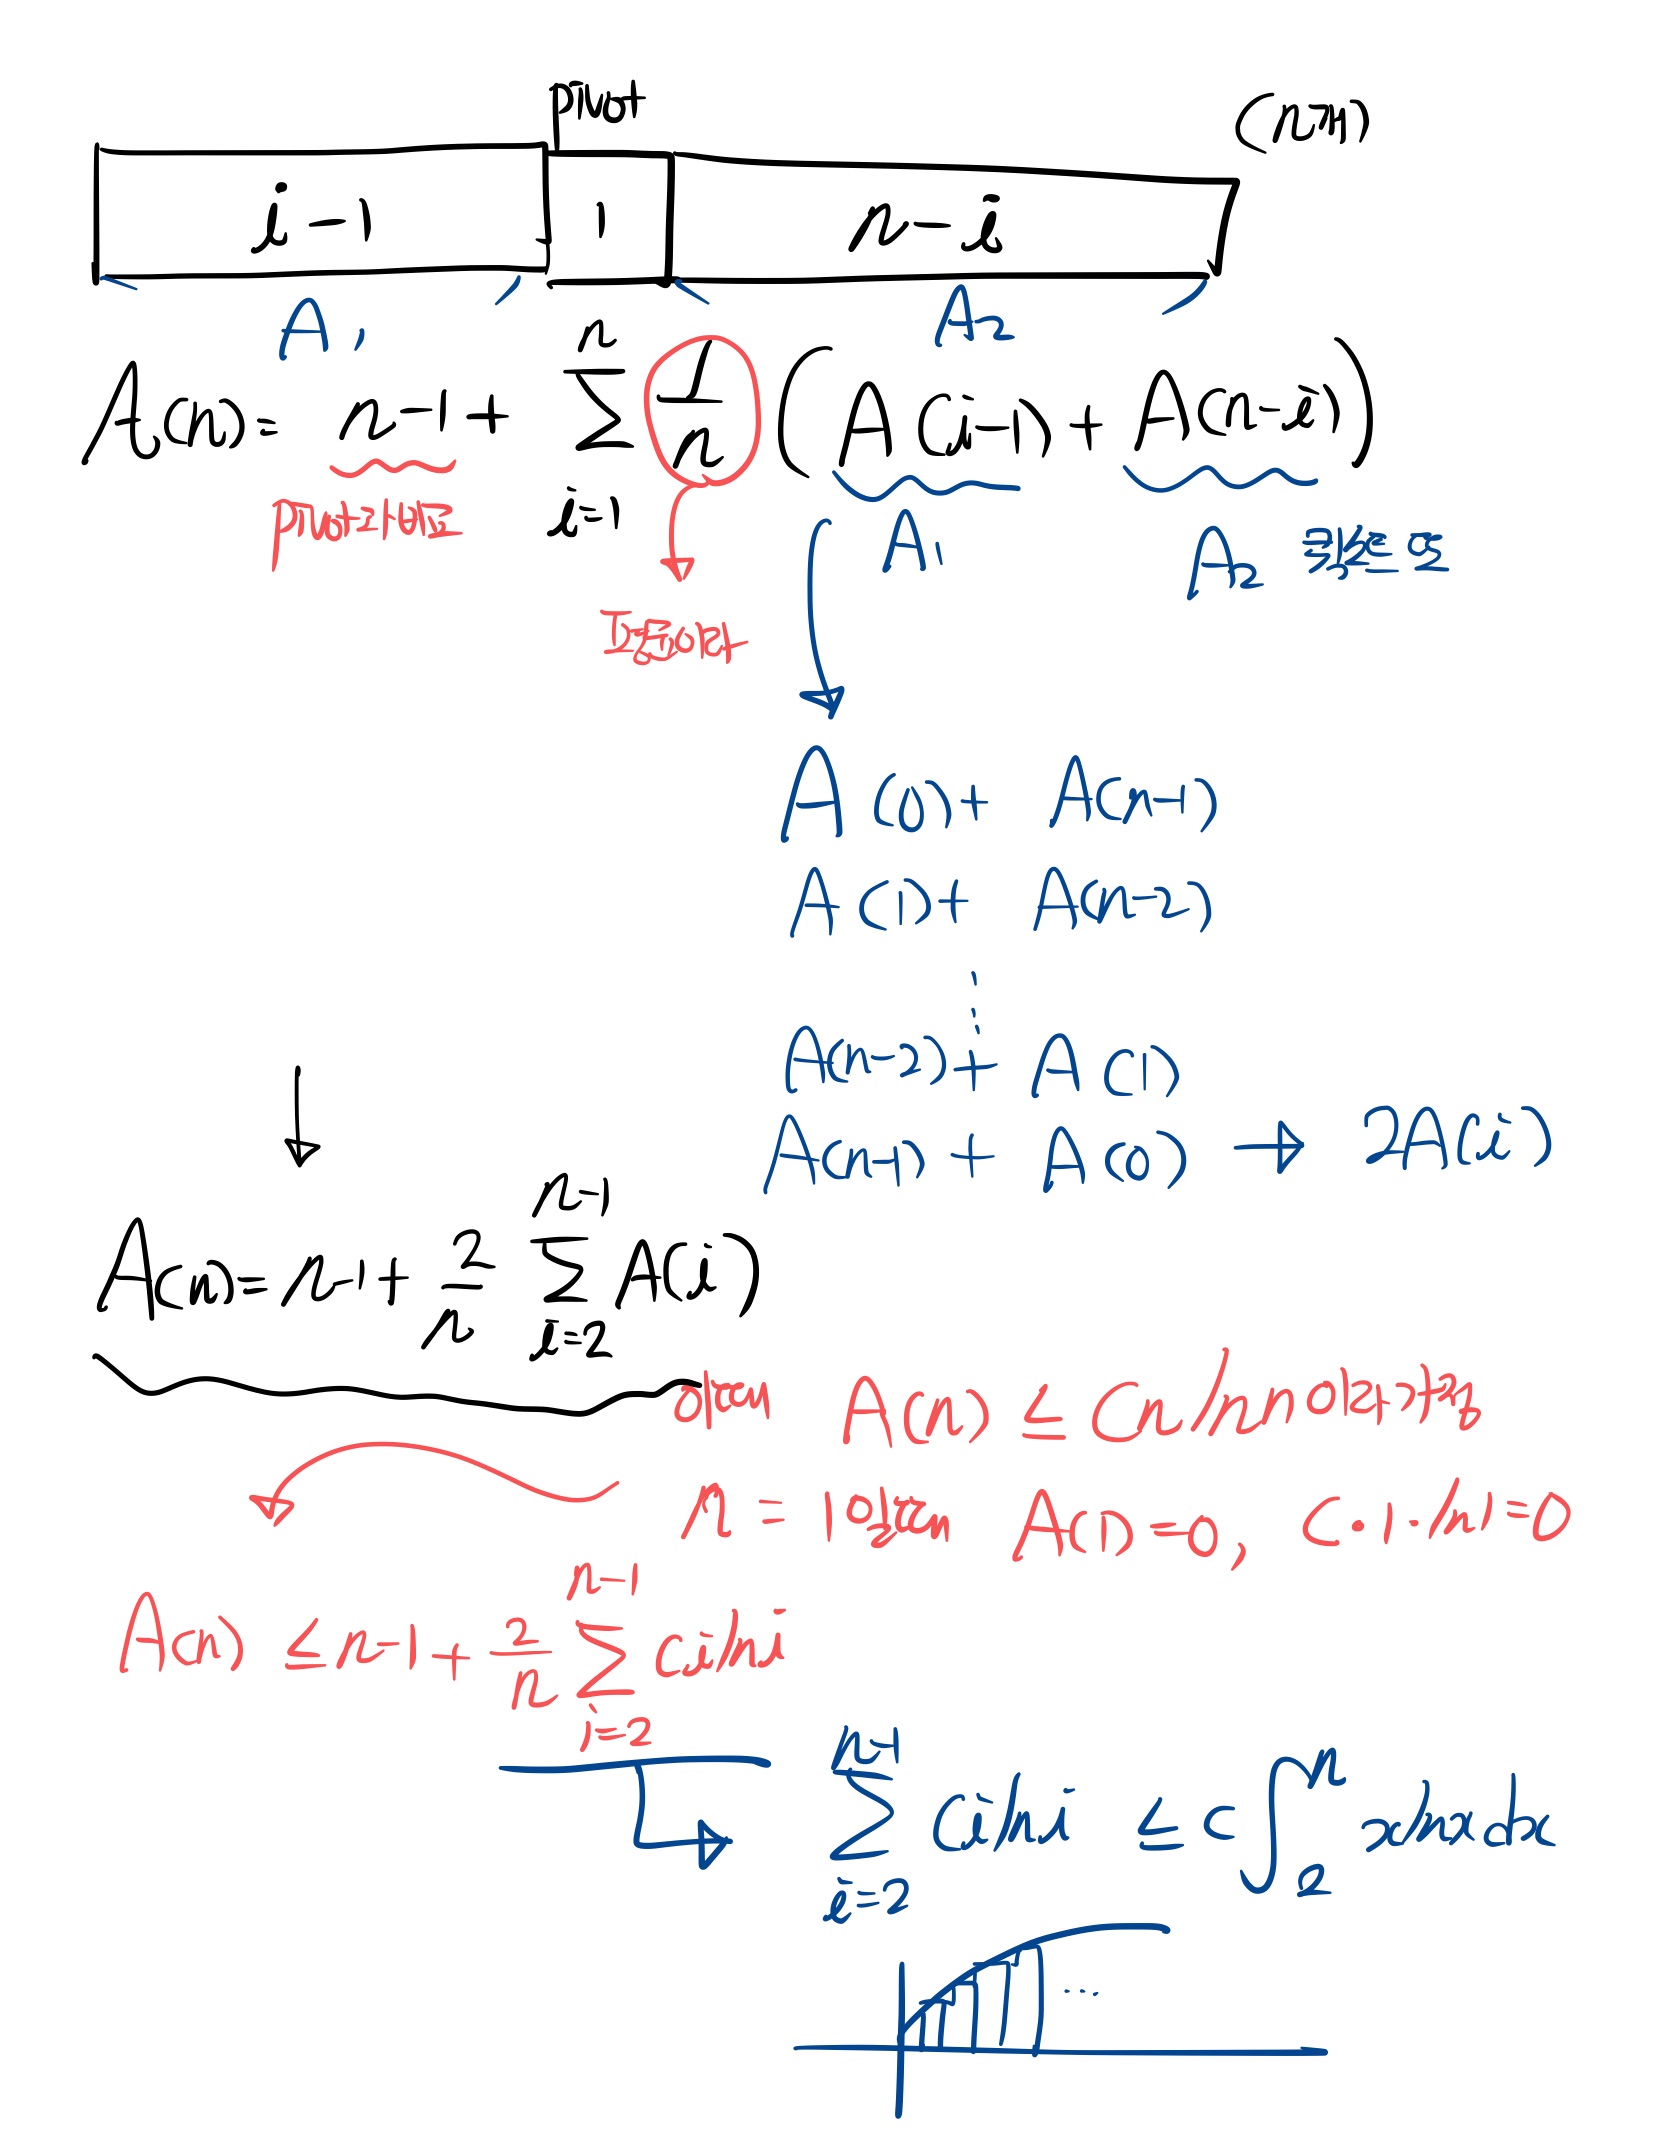 pivot
(n개)
i-1 1 n-i
A1 A2
A(n)= n-1 + \sum_{i=1}^{n} \frac{1}{n} (A(i-1) + A(n-i))
pivot과 비교
A1
A2 퀵소트 또
A(0) + A(n-1)
A(1) + A(n-2)
⋮
A(n-2) + A(1)
A(n-1) + A(0) → 2A(i)
A(n)= n-1 + \frac{2}{n} \sum_{i=2}^{n-1} A(i)
이때 A(n) ≤ Cn ln n 이라 가정
n = 1일때 A(1)=0, C·1·ln1=0
A(n) ≤ n-1 + \frac{2}{n} \sum_{i=2}^{n-1} Ci ln i
\sum_{i=2}^{n-1} Ci ln i ≤ C \int_{2}^{n} x ln x dx
...